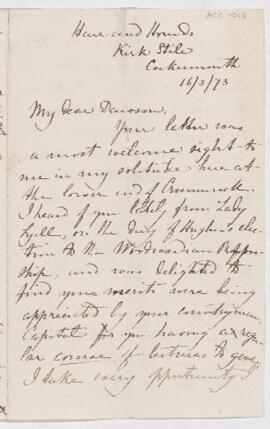 ACC 1018
Hare and Hounds
Kirk Stile
Cockermouth
16/3/73
My dear Dawson,
Your letter was
a most welcome sight to
me in my solitude here at
the lower end of Crummock.
I heard of you lately from Lady
Lyell, on the day of Hughes's elec-
tion to the Woodwardian Profes-
ship, and was delighted to
find your merits were being
appreciated by your countrymen.
Capital for you having a regu-
lar course of lectures to give,
I take every opportunity I